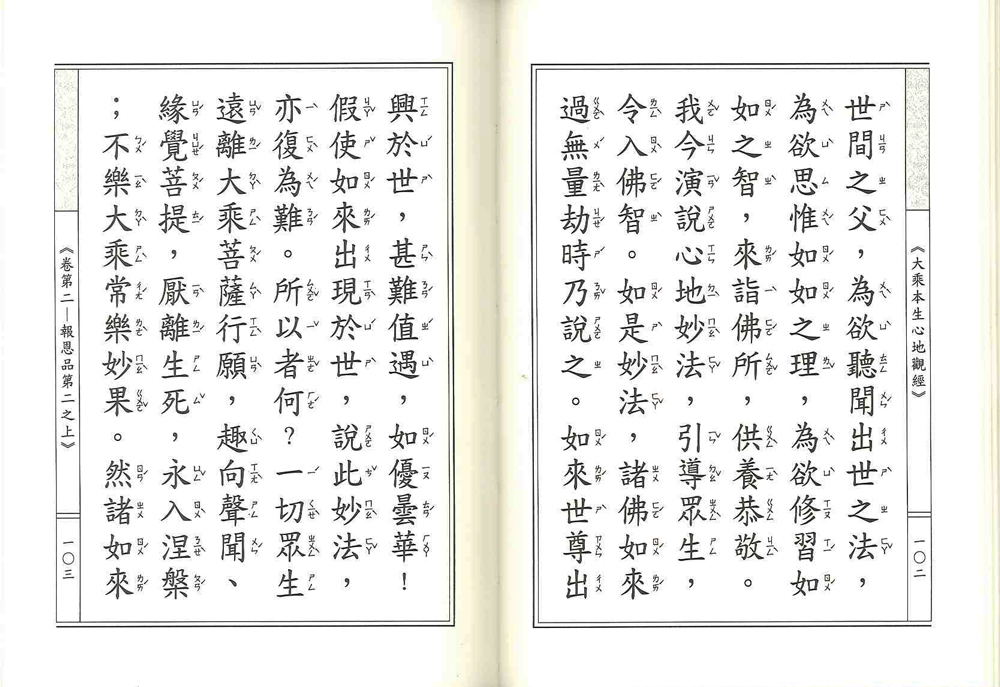 《大乘本生心地觀經》
一〇二
世間之父，為欲聽聞出世之法，
為欲思惟如如之理，為欲修習如
如之智，來詣佛所，供養恭敬。
我今演說心地妙法，引導眾生，
令入佛智。如是妙法，諸佛如來
過無量劫時乃說之。如來世尊出
興於世，甚難值遇，如優曇華！
假使如來出現於世，說此妙法，
亦復為難。所以者何？一切眾生
遠離大乘菩薩行願，趣向聲聞、
緣覺菩提，厭離生死，永入涅槃
；不樂大乘常樂妙果。然諸如來
《卷第二—報恩品第二之上》
一〇三